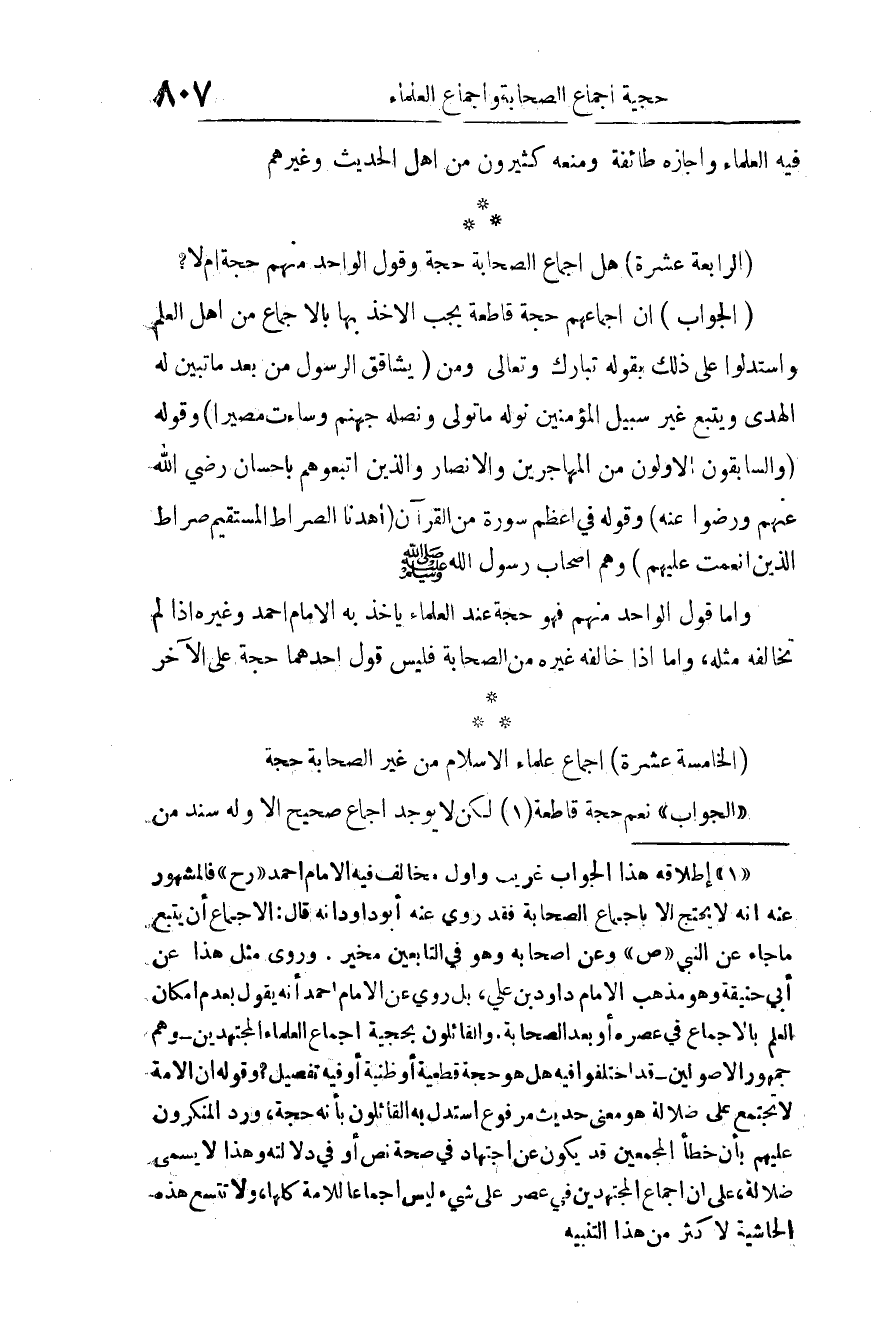 حجية اجماع الصحابة واجماع العلماء ٨٠٧
فيه العلماء واجازه طائفة ومنعه كثيرون من اهل الحديث وغيرهم
*
* *
(الرابعة عشرة) هل اجماع الصحابة حجة وقول الواحد منهم حجة ام لا؟
(الجواب) ان اجماعهم حجة قاطعة يجب الاخذ بها بالاجماع من اهل العلم
واستدلوا على ذلك بقوله تبارك وتعالى ومن (يشاقق الرسول من بعد ماتبين له
الهدى ويتبع غير سبيل المؤمنين نوله ماتولى ونصله جهنم وساءت مصيرا) وقوله
(والسابقون الاولون من المهاجرين والانصار والذين اتبعوهم باحسان رضي الله
عنهم ورضوا عنه) وقوله في اعظم سورة من القرآن (أهدنا الصراط المستقيم صراط
الذين انعمت عليهم) وهم اصحاب رسول الله ﷺ
واما قول الواحد منهم فهو حجة عند العلماء ياخذ به الامام احمد وغيره اذا لم
تخالفه مثله، واما اذا خالفه غيره من الصحابة فليس قول احدهما حجة على الآخر
*
* *
(الخامسة عشرة) اجماع علماء الاسلام من غير الصحابة حجة
«الجواب» نعم حجة قاطعة (١) لكن لا يوجد اجماع صحيح الا وله سند من
«١» إطلاقه هذا الجواب غريب واول مخالف فيه الامام احمد «رح» فالمشهور
عنه انه لا يحتج الا باجماع الصحابة فقد روي عنه أبو داود انه قال: الاجماع أن يتبع
ماجاء عن النبي «ص» وعن اصحابه وهو في التابعين مخير . وروى مثل هذا عن
أبي حنيفة وهو مذهب الامام داود بن علي، بل روي عن الامام احمد أنه يقول بعدم امكان
العلم بالاجماع في عصره أو بعد الصحابة. والقائلون بحجية اجماع العلماء المجتهدين – وهم
جمهور الاصولين – قد اختلفوا فيه هل هو حجة قطعية أو ظنية أو فيه تفصيل؟ وقوله ان الامة
لا تجتمع على ضلالة هو معنى حديث مرفوع استدل به القائلون بأنه حجة، ورد المنكرون
عليهم بأن خطأ المجمعين قد يكون عن اجتهاد في صحة نص أو في دلالته وهذا لا يسمى
ضلالة، على ان اجماع المجتهدين في عصر على شيء ليس اجماعا للامة كلها، ولا تتسع هذه
الحاشية لاكثر من هذا التنبيه